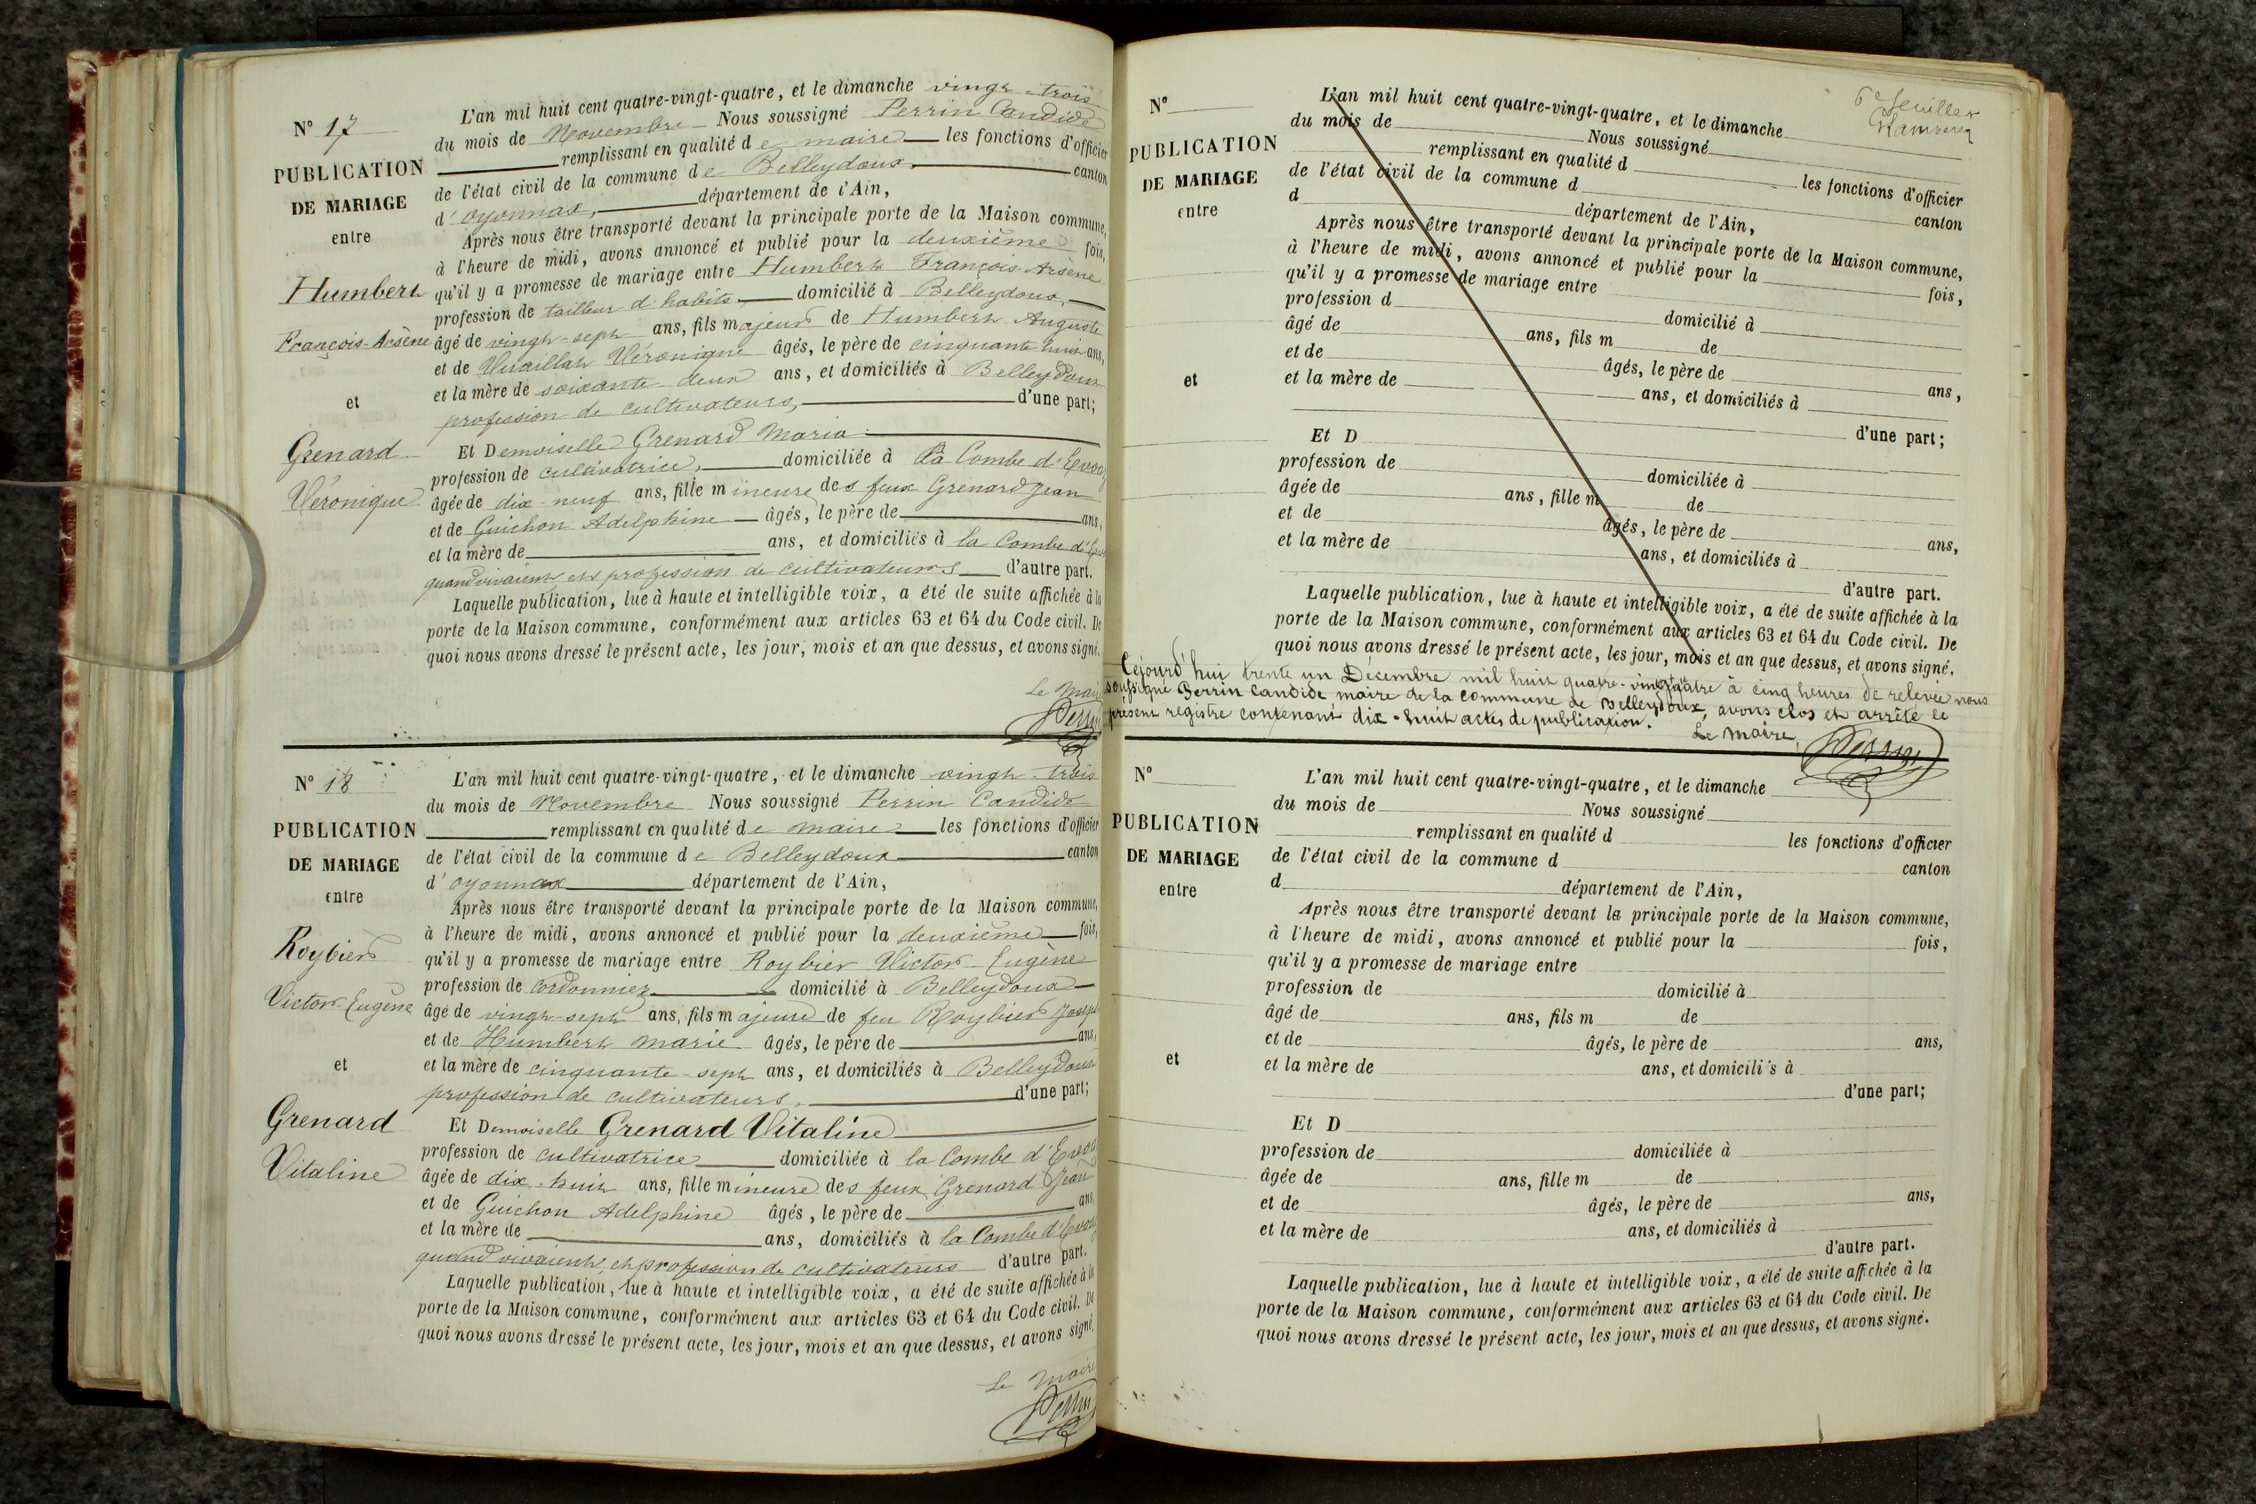 N° 17
PUBLICATION
DE MARIAGE
entre
Humbert
François-Arsène
et
Grenard
Véronique
L'an mil huit cent quatre-vingt-quatre, et le dimanche vingt-trois
du mois de Novembre Nous soussigné Perrin Candide
remplissant en qualité de maire les fonctions d'officier
de l'état civil de la commune de Belleydoux, canton
d'oyonnax, département de l'Ain,
Après nous être transporté devant la principale porte de la Maison commune,
à l'heure de midi, avons annoncé et publié pour la deuxième fois,
qu'il y a promesse de mariage entre Humbert François-Arsène
profession de tailleur d'habits domicilié à Belleydoux,
âgé de vingt-sept ans, fils majeur de Humbert Auguste
et de Vuaillat Véronique âgés, le père de cinquante huit ans,
et la mère de soixante-deux ans, et domiciliés à Belleydoux
profession de cultivateurs, d'une part;
Et Demoiselle Grenard Maria
profession de cultivatrice, domiciliée à la Combe d'Evoa
âgée de dix-neuf ans, fille mineure des feux Grenard Jean
et de Guichon Adelphine âgés, le père de ans,
et la mère de ans, et domiciliés à la Combe d'
quand vivaient et profession de cultivateurs d'autre part.
Laquelle publication, lue à haute et intelligible voix, a été de suite affichée à la
porte de la Maison commune, conformément aux articles 63 et 64 du Code civil. De
quoi nous avons dressé le présent acte, les jour, mois et an que dessus, et avons signé.
Le Maire
Perrin
N° 18
PUBLICATION
DE MARIAGE
entre
Roybier
Victor-Eugène
et
Grenard
Vitaline
L'an mil huit cent quatre-vingt-quatre, et le dimanche vingt-trois
du mois de Novembre Nous soussigné Perrin Candide
remplissant en qualité de maire les fonctions d'officier
de l'état civil de la commune de Belleydoux canton
d'oyonnax département de l'Ain,
Après nous être transporté devant la principale porte de la Maison commune,
à l'heure de midi, avons annoncé et publié pour la deuxième fois,
qu'il y a promesse de mariage entre Roybier Victor-Eugène
profession de Cordonnier domicilié à Belleydoux
âgé de vingt-sept ans, fils majeure de feu Roybier Joseph
et de Humbert marie âgés, le père de ans,
et la mère de cinquante-sept ans, et domiciliés à Belleydoux
profession de cultivateurs, d'une part;
Et Demoiselle Grenard Vitaline
profession de cultivatrice domiciliée à la Combe d'Evoa
âgée de dix-huit ans, fille mineure des feux Grenard Jean
et de Guichon Adelphine âgés, le père de ans,
et la mère de ans, domiciliés à la Combe d'Evoa
quand vivaient, et profession de cultivateurs d'autre part.
Laquelle publication, lue à haute et intelligible voix, a été de suite affichée à la
porte de la Maison commune, conformément aux articles 63 et 64 du Code civil. De
quoi nous avons dressé le présent acte, les jour, mois et an que dessus, et avons signé.
Le Maire
Perrin
6e feuillet
N°
PUBLICATION
DE MARIAGE
entre
et
L'an mil huit cent quatre-vingt-quatre, et le dimanche
du mois de Nous soussigné
remplissant en qualité d les fonctions d'officier
de l'état civil de la commune d canton
d département de l'Ain,
Après nous être transporté devant la principale porte de la Maison commune,
à l'heure de midi, avons annoncé et publié pour la fois,
qu'il y a promesse de mariage entre
profession d domicilié à
âgé de ans, fils m de
et de âgés, le père de ans,
et la mère de ans, et domiciliés à
d'une part;
Et D
profession de domiciliée à
âgée de ans, fille m de
et de âgés, le père de ans,
et la mère de ans, et domiciliés à
d'autre part.
Laquelle publication, lue à haute et intelligible voix, a été de suite affichée à la
porte de la Maison commune, conformément aux articles 63 et 64 du Code civil. De
quoi nous avons dressé le présent acte, les jour, mois et an que dessus, et avons signé.
Cejourd'hui trente un Décembre mil huit quatre-vingt quatre à cinq heures de relevée nous
soussigné Perrin Candide maire de la commune de Belleydoux, avons clos et arrêté le
présent registre contenant dix-huit actes de publication.
Le Maire,
Perrin
N°
PUBLICATION
DE MARIAGE
entre
et
L'an mil huit cent quatre-vingt-quatre, et le dimanche
du mois de Nous soussigné
remplissant en qualité d les fonctions d'officier
de l'état civil de la commune d canton
d département de l'Ain,
Après nous être transporté devant la principale porte de la Maison commune,
à l'heure de midi, avons annoncé et publié pour la fois,
qu'il y a promesse de mariage entre
profession de domicilié à
âgé de ans, fils m de
et de âgés, le père de ans,
et la mère de ans, et domicili's à
d'une part;
Et D
profession de domiciliée à
âgée de ans, fille m de
et de âgés, le père de ans,
et la mère de ans, et domiciliés à
d'autre part.
Laquelle publication, lue à haute et intelligible voix, a été de suite affichée à la
porte de la Maison commune, conformément aux articles 63 et 64 du Code civil. De
quoi nous avons dressé le présent acte, les jour, mois et an que dessus, et avons signé.